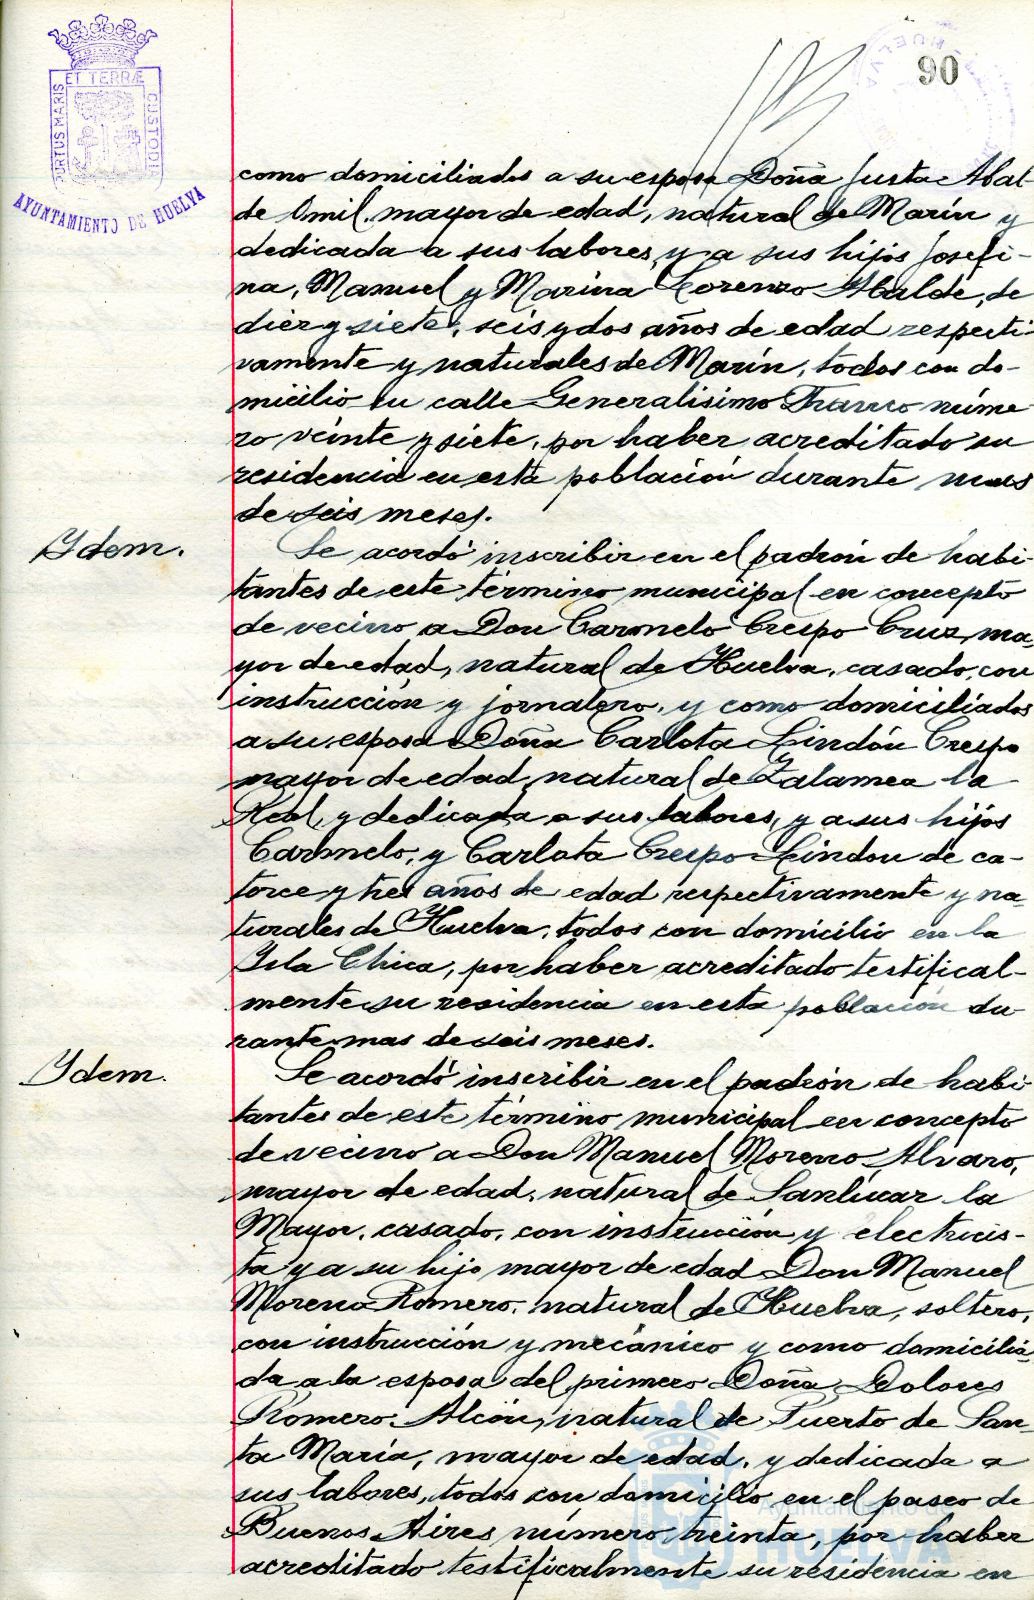 90
ET TERRÆ
PORTUS MARIS
CUSTODIA
AYUNTAMIENTO DE HUELVA
HUELVA
como domiciliados a su esposa Doña Justa Abal
de Omil, mayor de edad, natural de Marín y
dedicada a sus labores, y a sus hijos Josefi-
na, Manuel y Marina Lorenzo Abalde, de
diez y siete, seis y dos años de edad respecti-
vamente y naturales de Marín, todos con do-
micilio en calle Generalísimo Franco núme-
ro veinte y siete, por haber acreditado su
residencia en esta población durante mas
de seis meses.
Ydem.
Se acordó inscribir en el padrón de habi-
tantes de este término municipal en concepto
de vecino a Don Carmelo Crespo Cruz, ma-
yor de edad, natural de Huelva, casado, con
instrucción y jornalero, y como domiciliados
a su esposa Doña Carlota Lindón Crespo
mayor de edad, natural de Zalamea la
Real, y dedicada a sus labores, y a sus hijos
Carmelo, y Carlota Crespo Lindon de ca-
torce y tres años de edad respectivamente y na-
turales de Huelva, todos con domicilio en la
Ysla Chica, por haber acreditado testifical-
mente su residencia en esta población du-
rante mas de seis meses.
Ydem.
Se acordó inscribir en el padrón de habi-
tantes de este término municipal en concepto
de vecino a Don Manuel Moreno Alvaro,
mayor de edad, natural de Sanlúcar la
Mayor, casado, con instrucción y electricis-
ta y a su hijo mayor de edad Don Manuel
Moreno Romero, natural de Huelva, soltero,
con instrucción y mecánico y como domicilia-
da a la esposa del primero Doña Dolores
Romero Alcón, natural de Puerto de San-
ta María, mayor de edad, y dedicada a
sus labores, todos con domicilio en el paseo de
Buenos Aires número treinta, por haber
acreditado testificalmente su residencia en
Ayuntamiento de
HUELVA